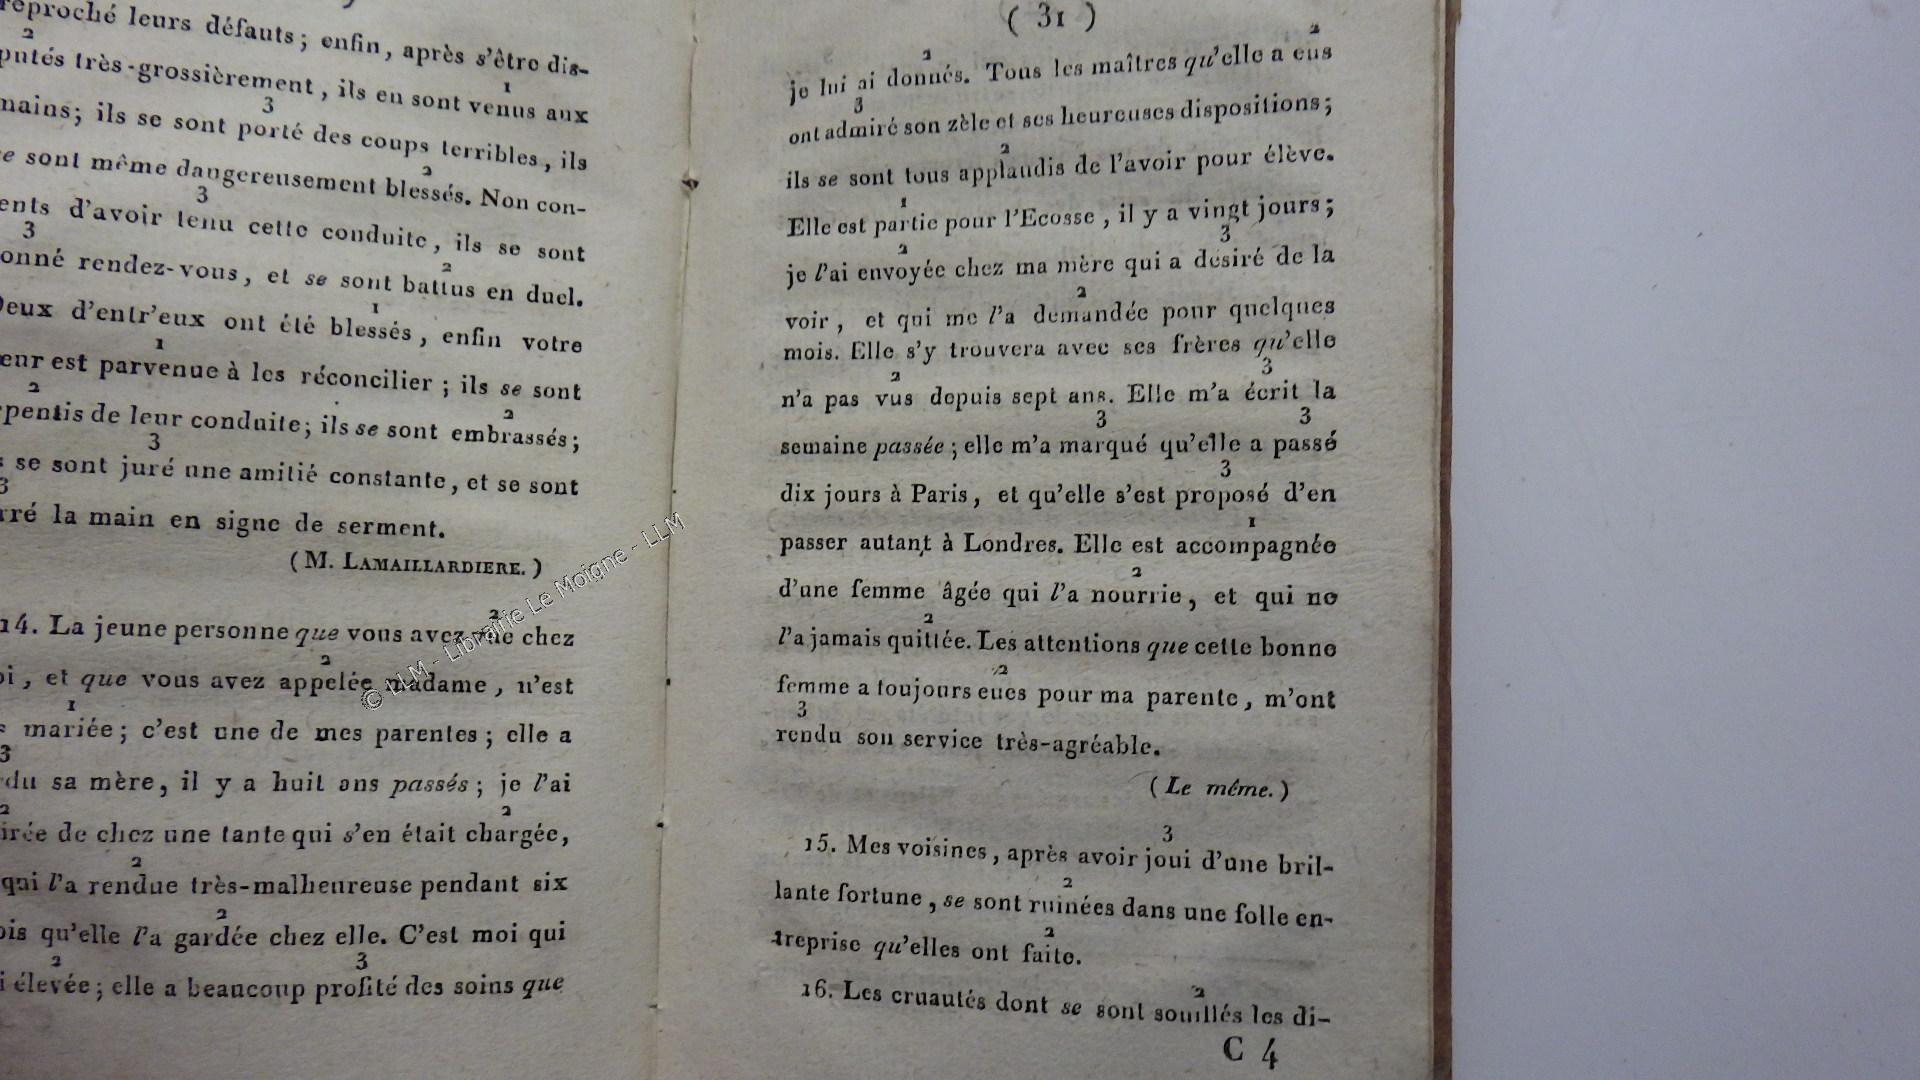 reproché leurs défauts; enfin, après s'être dis-
2
putés très-grossièrement, ils en sont venus aux
1
mains; ils se sont porté des coups terribles, ils
3
se sont même dangereusement blessés. Non con-
2
ents d'avoir tenu cette conduite, ils se sont
3
onné rendez-vous, et se sont battus en duel.
3 2
Deux d'entr'eux ont été blessés, enfin votre
1
œur est parvenue à les réconcilier; ils se sont
1
pentis de leur conduite; ils se sont embrassés;
2 2
s se sont juré une amitié constante, et se sont
3
rré la main en signe de serment.
3
(M. LAMAILLARDIERE.)
14. La jeune personne que vous avez vue chez
2
oi, et que vous avez appelée madame, n'est
2
s mariée; c'est une de mes parentes; elle a
1
rdu sa mère, il y a huit ans passés; je l'ai
3
irée de chez une tante qui s'en était chargée,
2 2
qui l'a rendue très-malheureuse pendant six
2
ois qu'elle l'a gardée chez elle. C'est moi qui
2
i élevée; elle a beaucoup profité des soins que
2 3
© LLM - Librairie Le Moigne - LLM
(31)
2 2
je lui ai donnés. Tous les maîtres qu'elle a eus
3
ont admiré son zèle et ses heureuses dispositions;
2
ils se sont tous applaudis de l'avoir pour élève.
1
Elle est partie pour l'Ecosse, il y a vingt jours;
2 3
je l'ai envoyée chez ma mère qui a désiré de la
2
voir, et qui me l'a demandée pour quelques
mois. Elle s'y trouvera avec ses frères qu'elle
2 3
n'a pas vus depuis sept ans. Elle m'a écrit la
3 3
semaine passée; elle m'a marqué qu'elle a passé
3
dix jours à Paris, et qu'elle s'est proposé d'en
1
passer autant à Londres. Elle est accompagnée
2
d'une femme âgée qui l'a nourrie, et qui ne
2
l'a jamais quittée. Les attentions que cette bonne
2
femme a toujours eues pour ma parente, m'ont
3
rendu son service très-agréable.
(Le même.)
3
15. Mes voisines, après avoir joui d'une bril-
2
lante fortune, se sont ruinées dans une folle en-
2
treprise qu'elles ont faite.
2
16. Les cruautés dont se sont souillés les di-
C 4